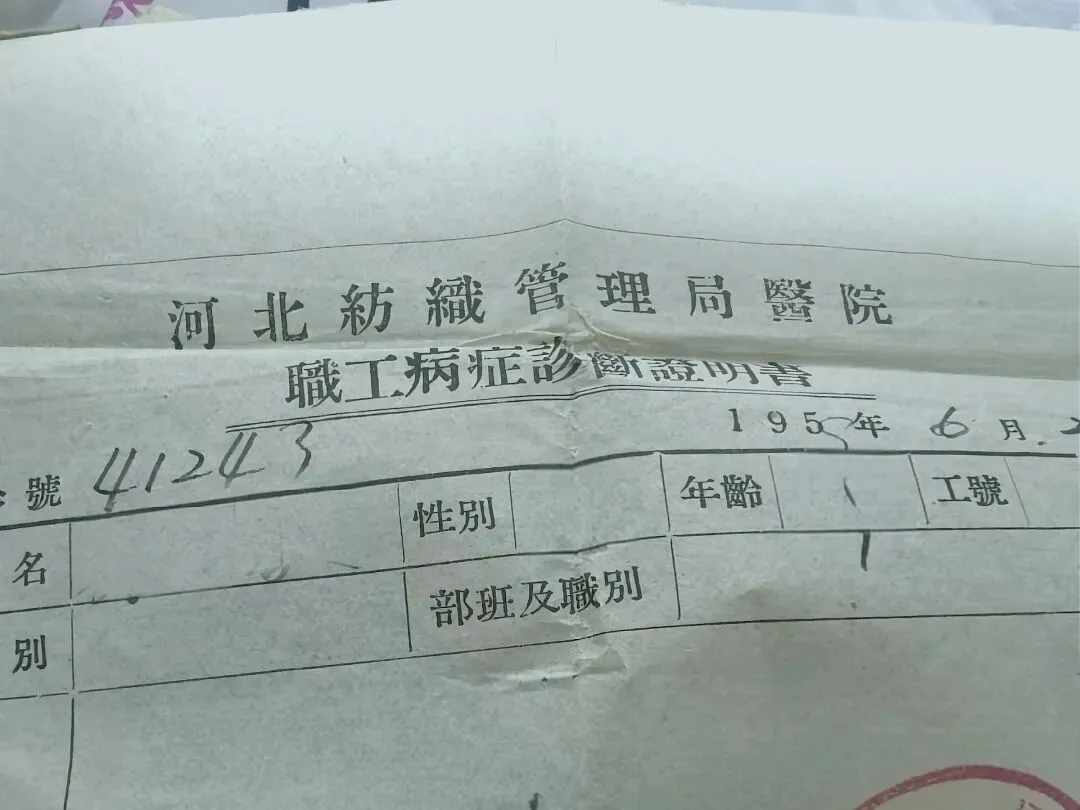 河北紡織管理局醫院
職工病症診斷證明書
1953年 6月 2
號 41243
名 性別 年齡 工號
別 部班及職別